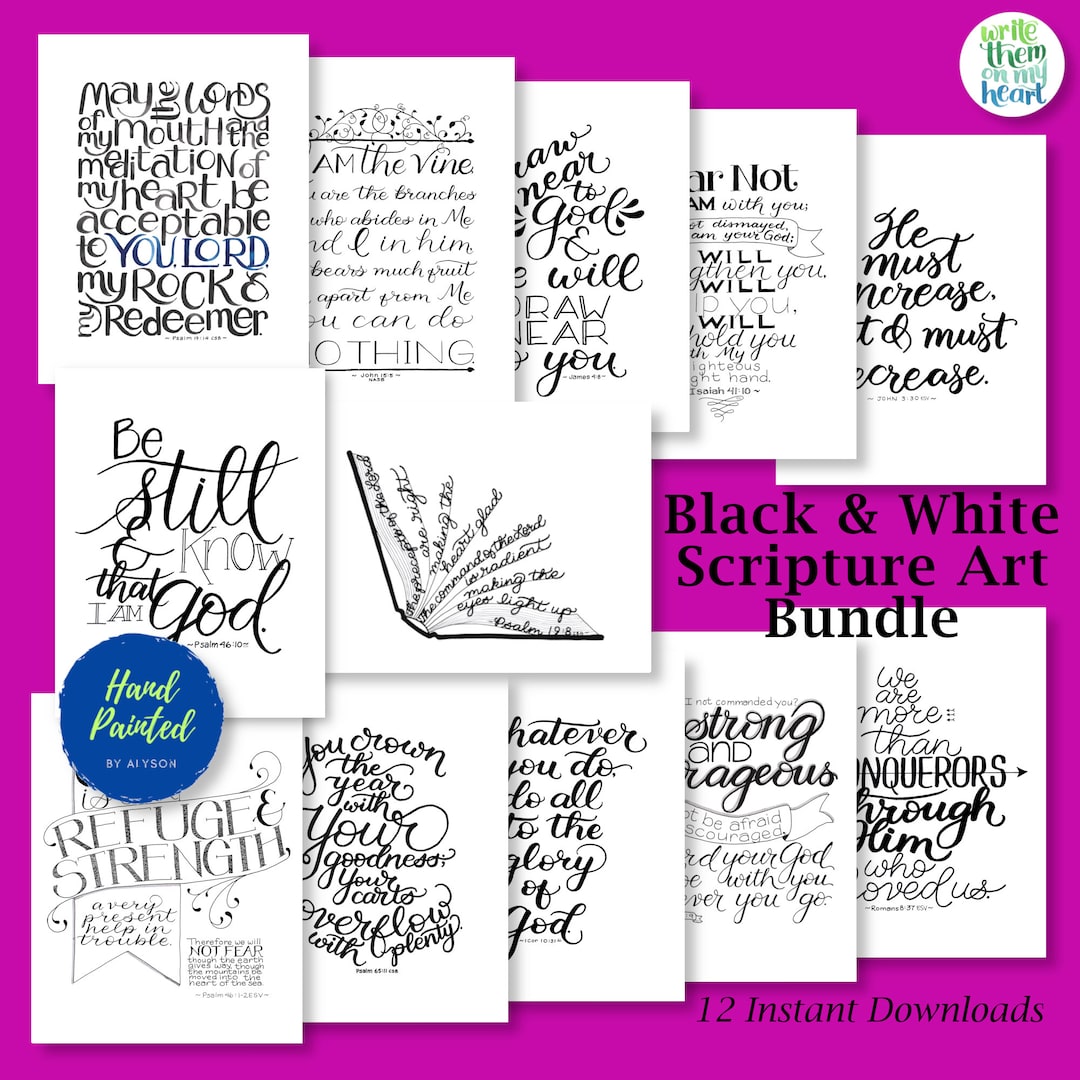 write
them
on my
heart
May the Words
of my mouth and
the meditation of
my heart be
acceptable
to YOU, LORD
my ROCK &
my Redeemer.
~ Psalm 19:14 CSB ~
AM the Vine,
are the branches
who abides in Me
and I in him,
bears much fruit
apart from Me
you can do
NOTHING.
~ John 15:5 ~
NASB
near to
God
&
will
DRAW
NEAR
to you.
~ James 4:8 ~
Not
AM with you;
not dismayed,
am your God;
WILL
you,
WILL
you,
WILL
you
with My
righteous
hand.
Isaiah 41:10 ~
He
must
increase,
& must
~ JOHN 3:30 ESV ~
Be
Still
& Know
that
I AM God.
~ Psalm 46:10 ~
ESV
The precepts of the Lord
are right
making the
heart glad
The command of the Lord
is radient
making the
eyes light up
~ Psalm 19:8
Black & White
Scripture Art
Bundle
Hand
Painted
BY AlYSON
is
REFUGE &
STRENGTH,
a very
present
help in
trouble.
Therefore we will
NOT FEAR
though the earth
gives way, though
the mountains be
moved into the
heart of the sea.
~ Psalm 46:1-2 ESV ~
You crown
the
year
with
Your
goodness;
Your
carts
overflow
with plenty.
Psalm 65:11 CSB
you do,
do all
to the
glory
of
God
~ 1Cor 10:31 ~
I not commanded you?
strong
and
not be afraid
discouraged,
your God
be with you
you go.
We
are
more
than
CONQUERORS
through
Him
who
loved us.
~ Romans 8:37 ESV ~
12 Instant Downloads